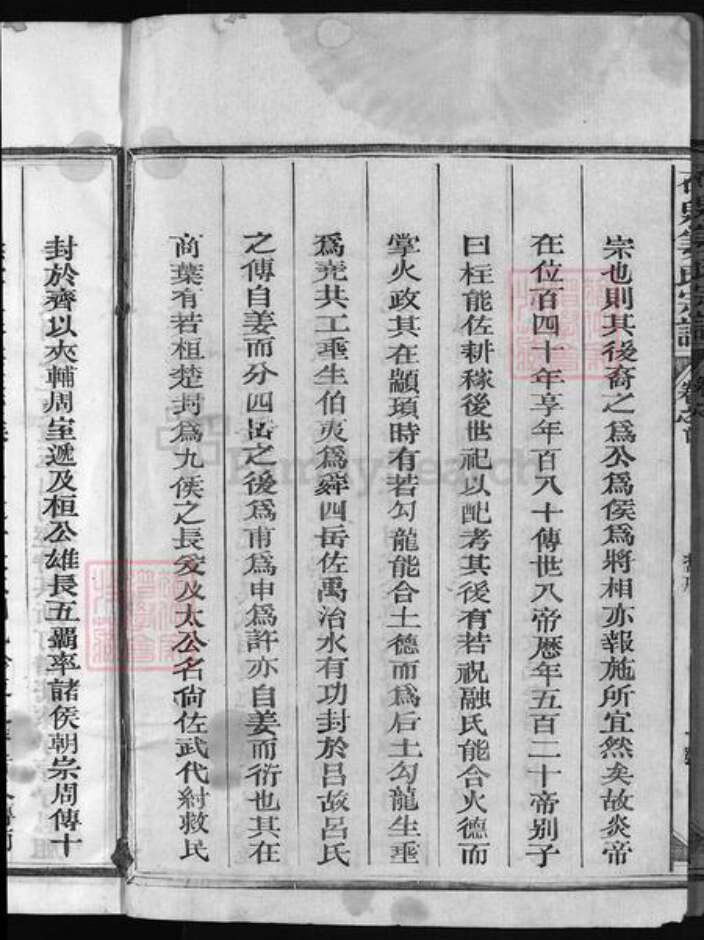 宗也則其後裔之爲公爲侯爲將相亦報施所宜然矣故炎帝
在位百四十年享年百八十傳世八帝曆年五百二十帝别子
曰柱能佐耕稼後世祀以配考其後有若祝融氏能合火德而
掌火政其在顓頊時有若勾龍能合土德而爲后土勾龍生垂
爲堯共工垂生伯夷爲舜四岳佐禹治水有功封於呂故呂氏
之傳自姜而分四岳之後爲甫爲申爲許亦自姜而衍也其在
商葉有若桓楚封爲九侯之長爰及太公名尙佐武代紂救民
封於齊以夾輔周室遞及桓公雄長五覇率諸侯朝宗周傳十